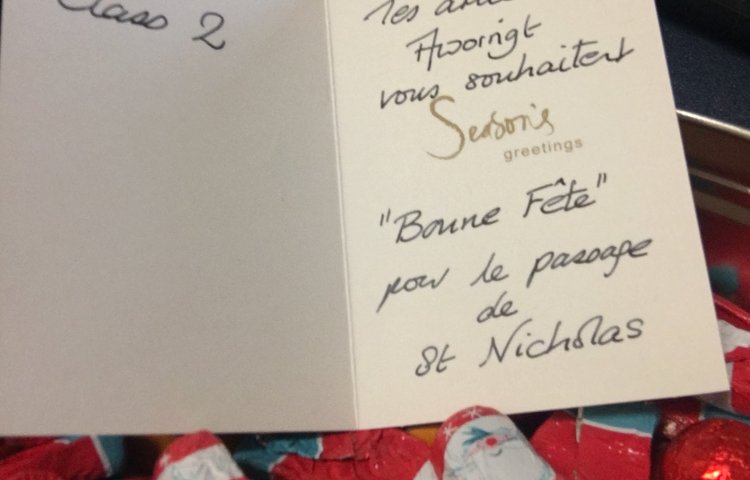 Class 2
les
Aworrigt
vous souhaitent
Season's
greetings
"Bonne Fête"
pour le passage
de
St Nicholas